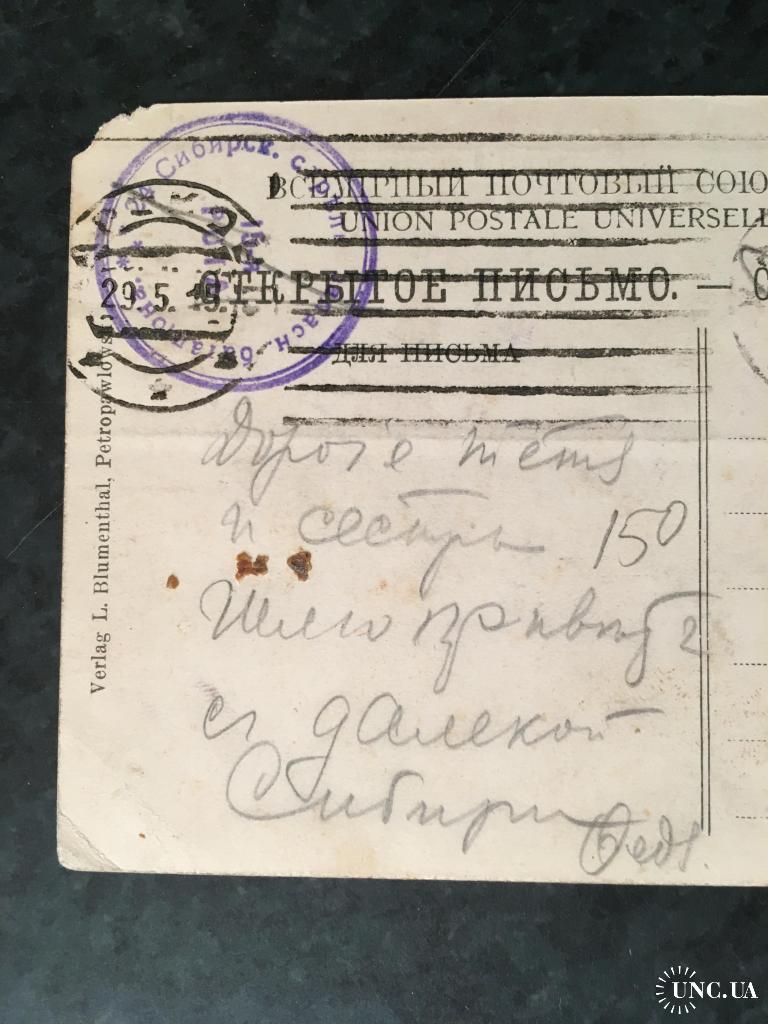 ВСЕМІРНЫЙ ПОЧТОВЫЙ СОЮ
UNION POSTALE UNIVERSELL
ОТКРЫТОЕ ПИСЬМО. —
ДЛЯ ПИСЬМА
Сибирск. стрѣл.
29.5
Verlag L. Blumenthal, Petropawlows
Дорогіе тетя
и сестры
150
Шлю привѣтъ
съ далекой
Сибири
UNC.UA